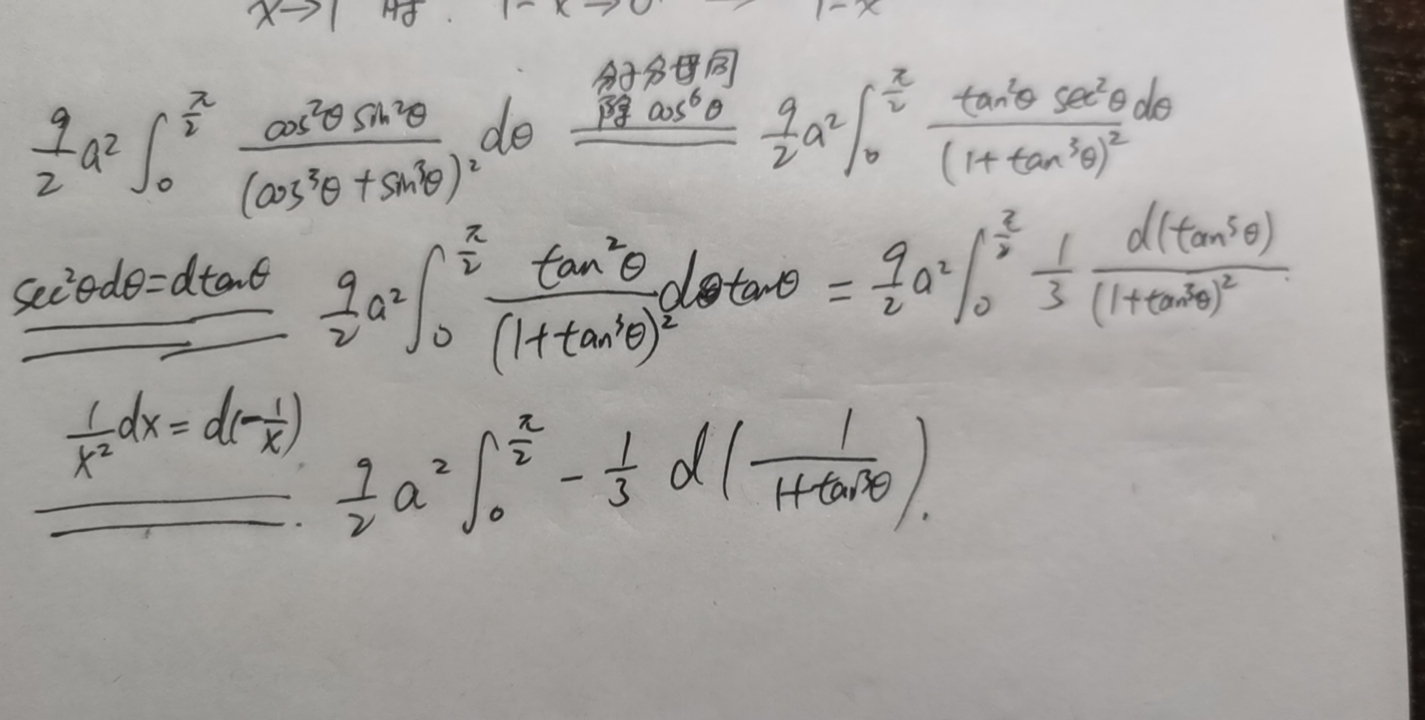 x→1 时. 1-x→0 → 1-x
9/2 a² ∫₀^{π/2} cos²θ sin²θ/(cos³θ+sin³θ)² dθ 分子分母同除 cos⁶θ 9/2 a² ∫₀^{π/2} tan²θ sec²θ dθ/(1+tan³θ)²
sec²θdθ=dtanθ 9/2 a² ∫₀^{π/2} tan²θ/(1+tan³θ)² dtanθ = 9/2 a² ∫₀^{π/2} 1/3 d(tan³θ)/(1+tan³θ)²
1/x² dx = d(-1/x) 9/2 a² ∫₀^{π/2} -1/3 d(1/(1+tan³θ)).